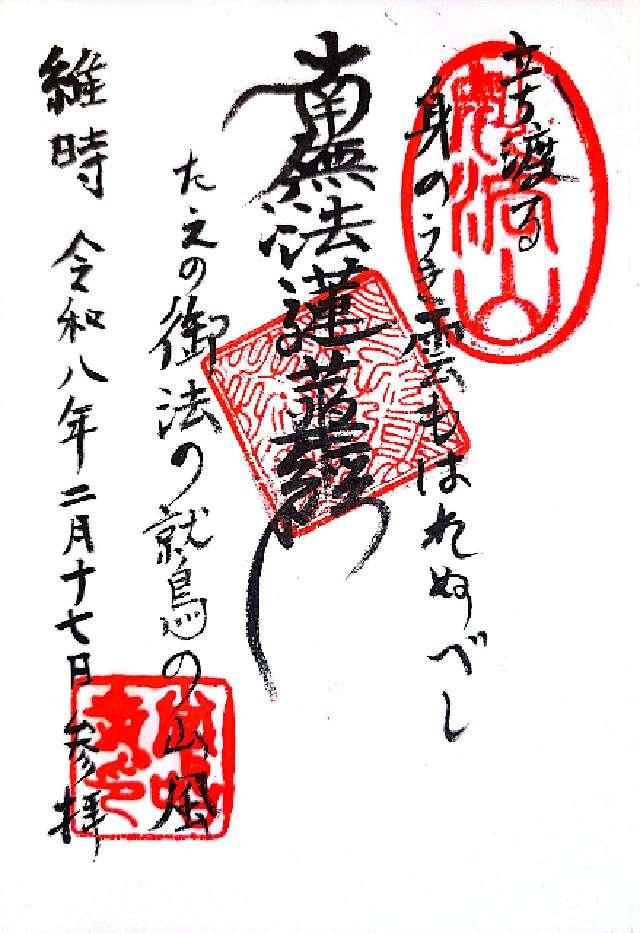 立ち渡る
身のうき雲もはれぬべし
南無妙法蓮華経
たえの御法の鷲の山風
維時 令和八年二月十七日 参拝